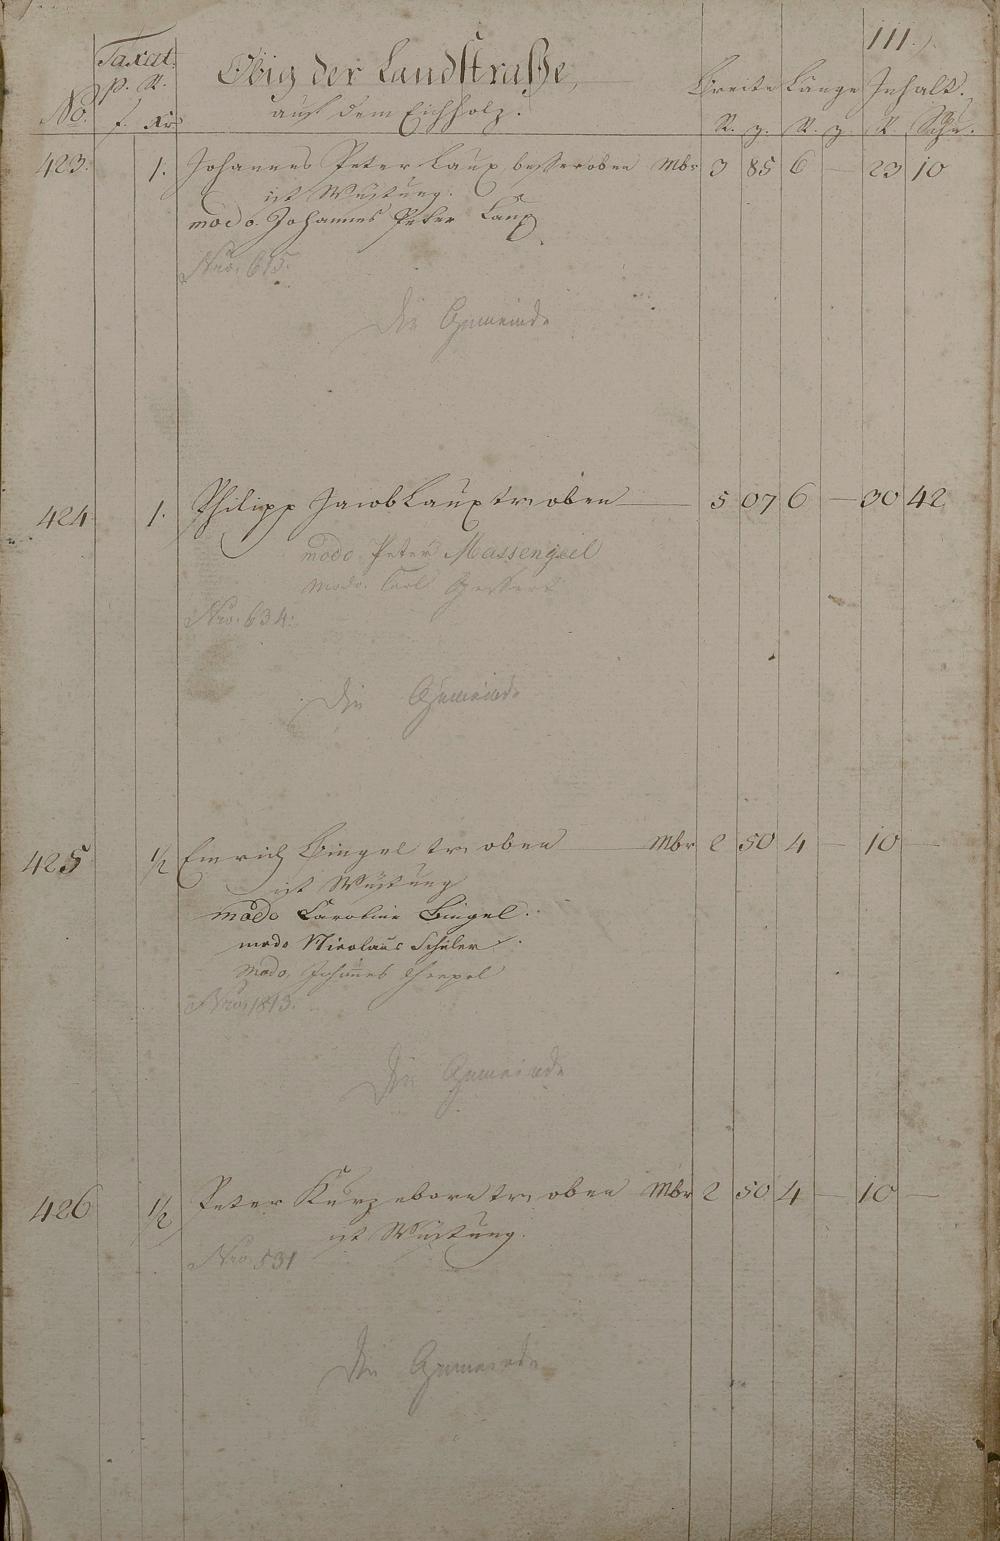 111.
Taxat: Obig der Landstraße,
p. R. Breite Länge Inhalt.
No. f. Xr auf dem Eichholz. R. z. R. z. R. Schu.
423. 1. Johannes Peter Laux besser oben Mbr 3 85 6 — 23 10
ist Wüstung.
modo. Johannes Peter Laux
Nro. 615.
Die Gemeinde
424 1. Philipp Jacob Laux tr. oben — 5 07 6 — 30 42
modo Peter Massengeil
modo. Carl
Nro. 634.
Die Gemeinde
425 1/2 Emrich Bingel tr. oben — Mbr 2 50 4 — 10 —
ist Wüstung
modo Caroline Bingel.
modo Nicolaus Schüler.
modo, Johannes
Nro. 1813.
Die Gemeinde
426 1/2 Peter Kurzeborn tr. oben Mbr 2 50 4 — 10 —
ist Wüstung.
Nro 531
Die Gemeinde